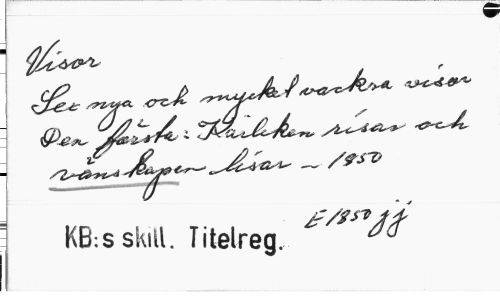 Visor
Sex nya och mycket vackra visor
Den första: Kärleken risar och
vänskapen lisar – 1850
E 1850 jj
KB:s skill. Titelreg.